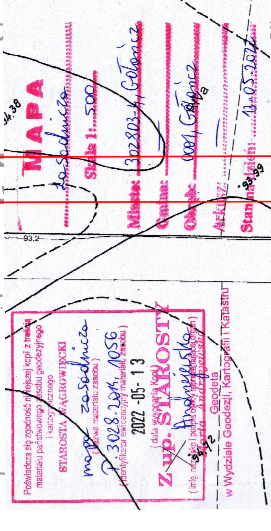 MAPA
zasadnicza
Skala 1: 500
Miasto: 302803_4, Gołańcz
Gmina:
Obręb: 0001, Gołańcz
Arkusz:
Stan na dzień: 13.05.2022
94.38
93.2
93.99
Poświadcza się zgodność niniejszej kopii z treścią
materiału państwowego zasobu geodezyjnego
i kartograficznego
STAROSTA WĄGROWIECKI
mapa zasadnicza
(nazwa materiału zasobu)
P.3028.2014.1056
(identyfikator ewidencyjny materiału zasobu)
2022 -05- 1 3
(data wykonania kopii)
Z up. STAROSTY
Geodeta
w Wydziale Geodezji, Kartografii i Katastru